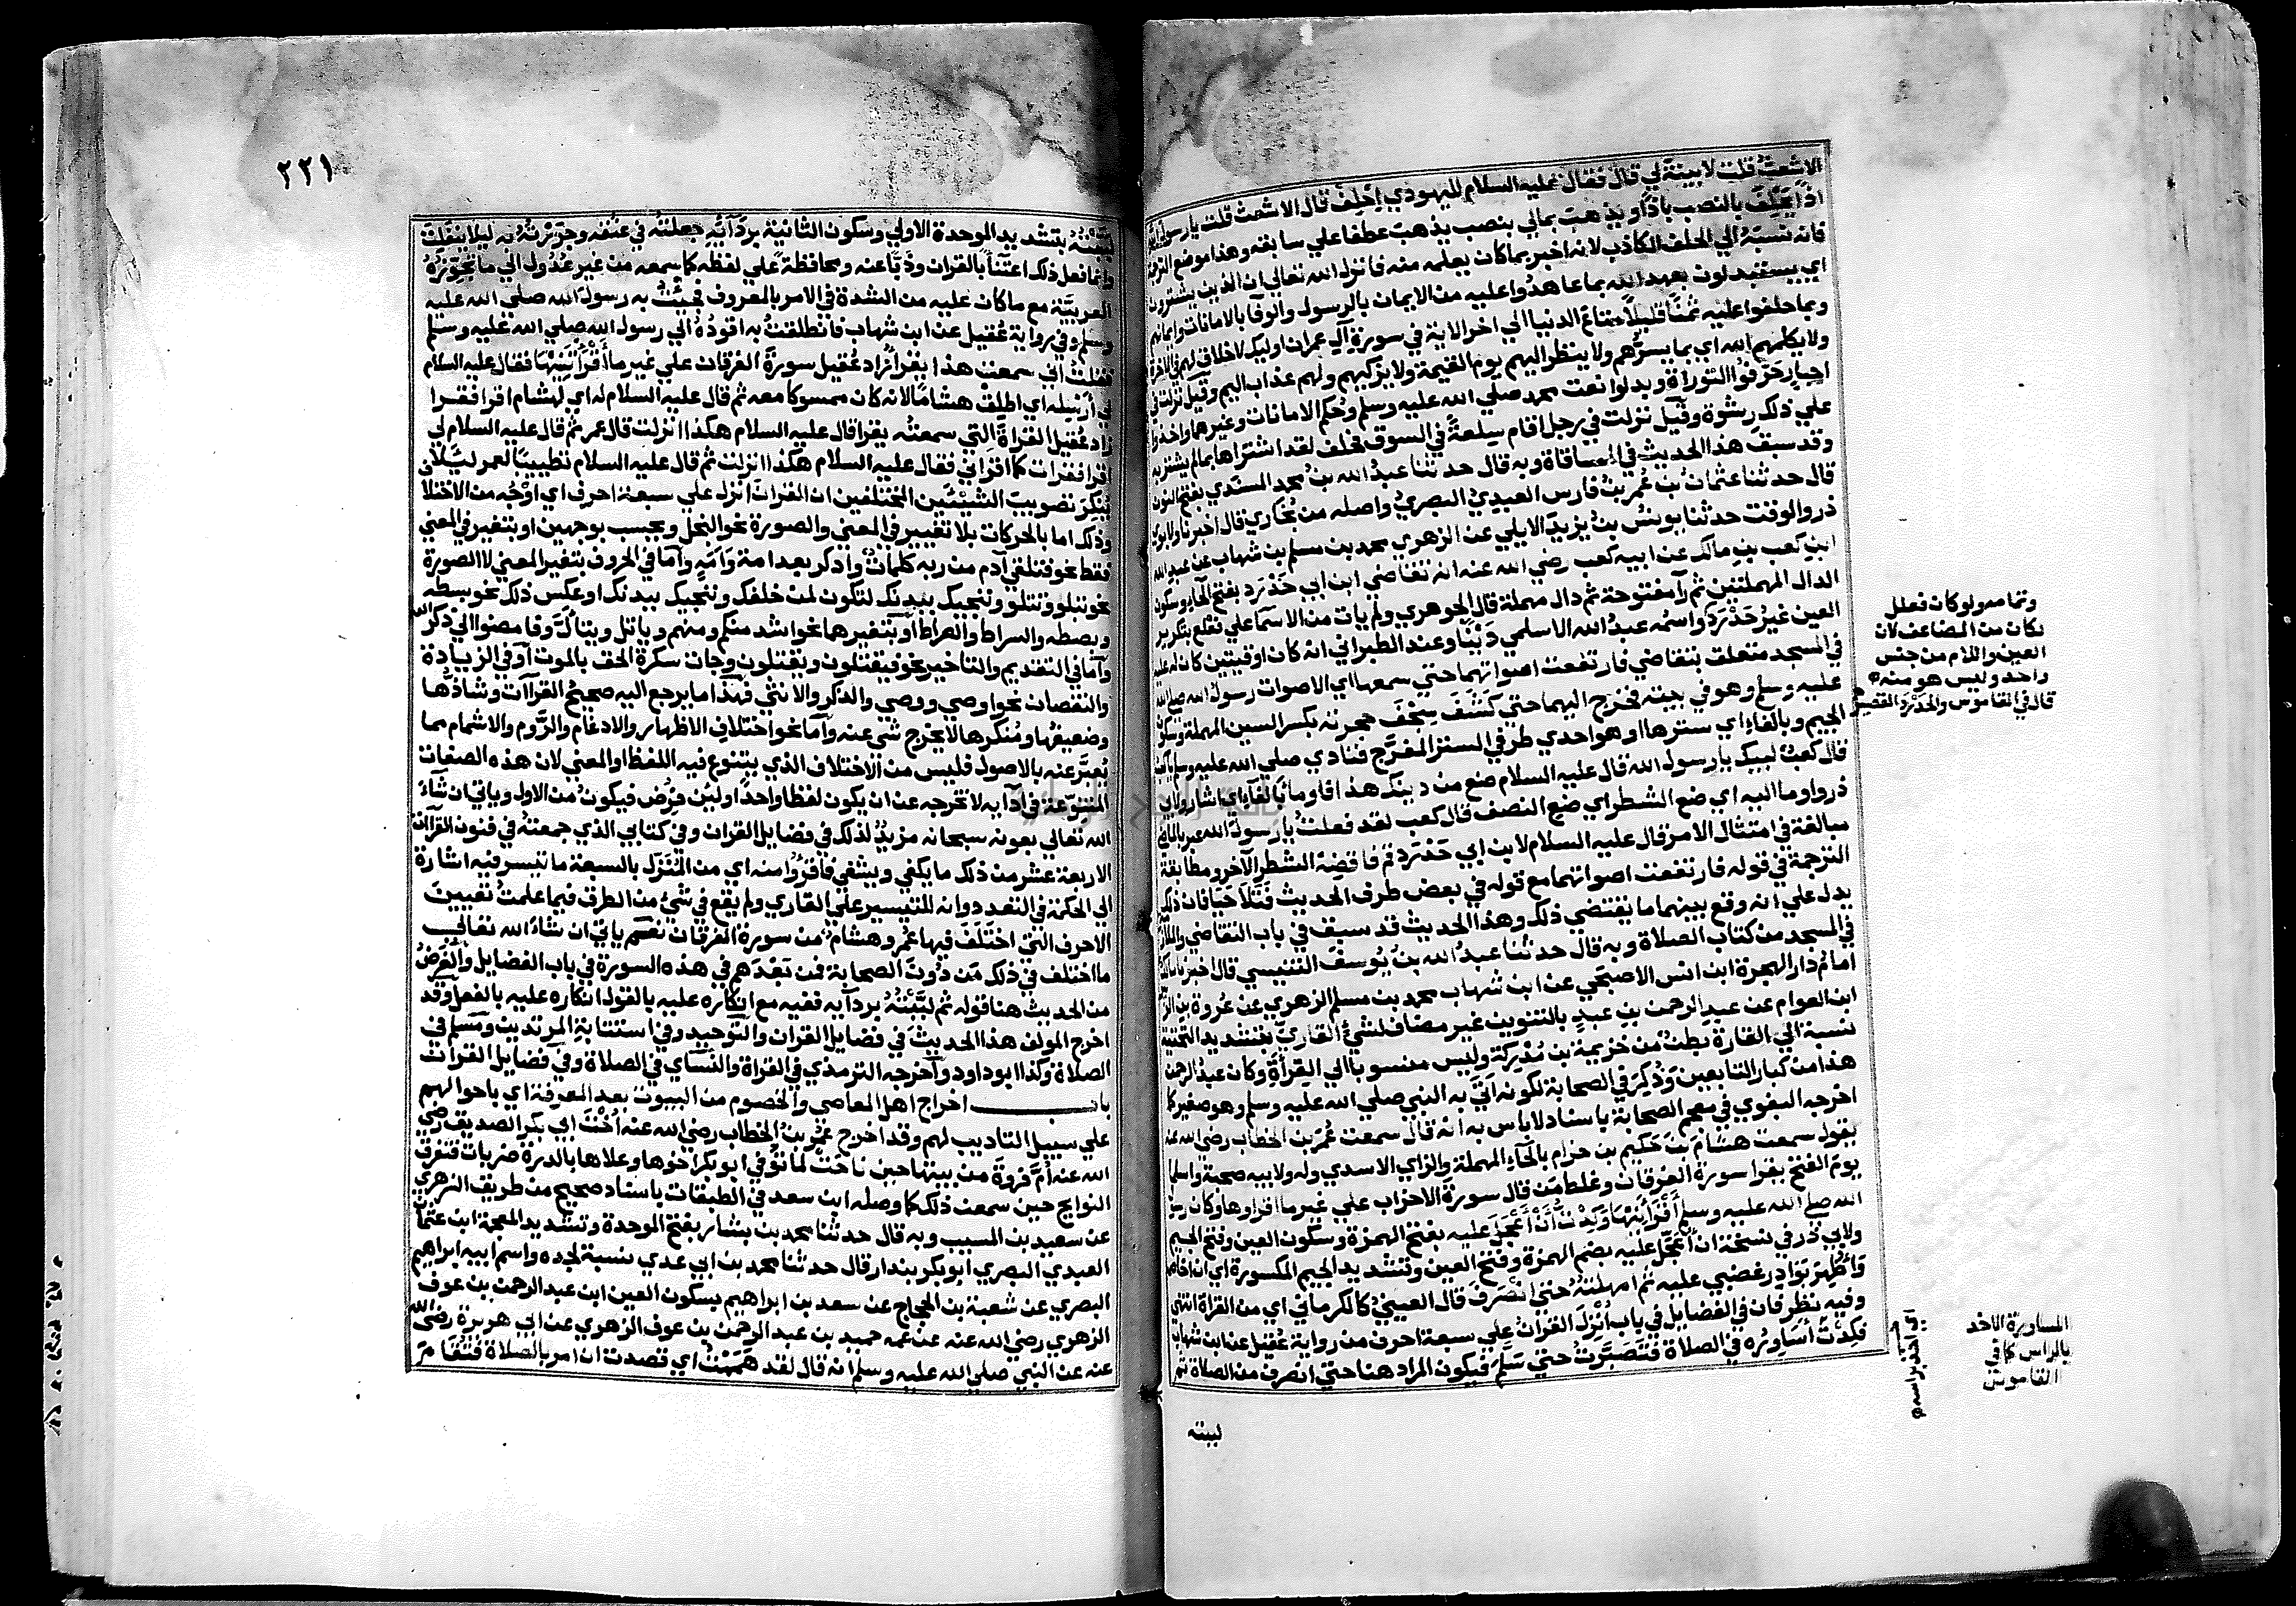 الاشعث قلت لا بينة لي قال فقال عليه السلام لليهودي احلف قال الاشعث قلت يا رسول الله
اذًا يحلفَ بالنصب باذًا ويذهبَ بمالي بنصب يذهب عطفا علي سابقه وهذا موضع الترجمة
فانه نسبه الي الحلف الكاذب لانه اخبر بما كان يعلمه منه فانزل الله تعالي ان الذين يشترون
اي يستبدلون بعهد الله بما عاهدوا عليه من الايمان بالرسول والوفا بالامانات وايمانهم
وبما حلفوا عليه ثمنًا قليلًا متاع الدنيا الي اخر الاية في سورة آل عمران اوليك لا خلاق لهم في الاخرة
ولا يكلمهم الله اي بما يسرّهم ولا ينظر اليهم يوم القيمة ولا يزكيهم ولهم عذاب اليم وقيل نزلت في
احبار حرّفوا التوراة وبدلوا نعت محمد صلي الله عليه وسلم وحكم الامانات وغيرهما واخذوا
علي ذلك رشوة وقيل نزلت في رجل اقام سلعةً في السوق فحلف لقد اشتراها بما لم يشترها به
وقد سبق هذا الحديث في المساقاة وبه قال حدثنا عبدُ الله بن محمد المسندي بفتح النون
قال حدثنا عثمان بن عُمر بن فارس العبديُ البصريُ واصله من بُخاري قال اخبرنا ولابوي
ذر والوقت حدثنا يونس بن يزيد الايلي عن الزهري محمد بن مسلم بن شهاب عن عبد الله
ابن كعب بن مالك عن ابيه كعب رضي الله عنه انه تقاضي ابن ابي حَدْرَد بفتح الحاء وسكون
الدال المهملتين ثم رآ مفتوحة ثم دال مهملة قال الجوهري ولم يات من الاسما علي فعلع بتكرير
العين غيرُ حَدْرَد واسمه عبدُ الله الاسلمي دَيْنًا وعند الطبراني انه كان اوقيتين كان له عليه
في المسجد متعلق بتقاضي فارتفعت اصواتهما حتي سمعها اي الاصوات رسول الله صلي الله
عليه وسلم وهو في بيته فخرج اليهما حتي كَشَفَ سِجْفَ حجرته بكسر السين المهملة وسكون
الجيم وبالفاء اي سترها او هو احدي طرفي الستر المفرّج فنادي صلي الله عليه وسلم يا كعب
قال كعبٌ لبيك يا رسول الله قال عليه السلام ضع من دينك هذا فاومأ بالفاء اي اشار ولابي
ذر واوما اليه اي ضع الشطر اي ضع النصف قال كعب لقد فعلتُ يا رسول الله عبر بالماضي
مبالغة في امتثال الامر قال عليه السلام لابن ابي حَدْرَد قم فاقضه الشطر الآخر ومطابقة
الترجمة في قوله فارتفعت اصواتهما مع قوله في بعض طرق الحديث فتلاحيا فان ذلك
يدل علي انه وقع بينهما ما يقتضي ذلك وهذا الحديث قد سبق في باب التقاضي والملازمة
في المسجد من كتاب الصلاة وبه قال حدثنا عبدُ الله بن يُوسف التنيسي قال اخبرنا مالك
امامُ دار الهجرة ابن انس الاصبحي عن ابن شهاب محمد بن مسلم الزهري عن عُروة بن الزبير
ابن العوام عن عبدِ الرحمن بنِ عبدٍ بالتنوين غير مضاف لشيءٍ القاريّ بتشديد التحتية
نسبة الي القارة بطن من خزيمة بن مُدْرِكة وليس منسوبا الي القِرأةِ وكان عبدُ الرحمن
هذا من كبار التابعين وذُكِرَ في الصحابة لكونه اُتِيَ به النبي صلي الله عليه وسلم وهو صغير كما
اخرجه البغوي في معجم الصحابة باسناد لا باس به انه قال سمعت عُمرَ بن الخطاب رضي الله عنه
يقول سمعت هشامَ بنَ حَكيم بن حزام بالحاءِ المهملة والزاي الاسدي وله ولابيه صحبة واسلما
يوم الفتح يقرا سورة الفرقان وغلط مَن قال سورة الاحزاب علي غير ما اقراوها وكان رسول
الله صلي الله عليه وسلم أَقْرَأَنِيْهَا وَكِدْتُ أَنْ أَعْجَلَ عليه بفتح الهمزة وسكون العين وفتح الجيم
ولابي ذر في نسخة ان أُعَجِّل عليه بضم الهمزة وفتح العين وتشديد الجيم المكسورة اي ان اخاصمه
وأُظْهِرَ بَوَادِرَ غضبي عليه ثم امهلتُهُ حتي انْصَرَفَ قال العينيُ كالكرماني اي من القراة انتهي
وفيه نظر فان في الفضايل في باب أُنْزِلَ القران علي سبعة احرف من رواية عُقيل عن ابن شهاب
فكِدْتُ أُسَاوِرُه في الصلاة فتَصَبَّرْتُ حتي سَلَّمَ فيكون المراد هنا حتي انصرف من الصلاة ثم
لببته
وتمامه ولو كان فعلل
لكان من المضاعف لان
العين واللام من جنس
واحد وليس هو منه
قال في القاموس والحَدْرَد القصير
اي اخذ براسه
المساورة الاخذ
بالراس كما في
القاموس
٢٢١
لَبَّبْتُهُ بتشديد الموحدة الاولي وسكون الثانية بردَآئِهِ جعلتُه في عُنُقه وجرّرْتُه به ليلا ينفلت
وانما فعل ذلك اعتنآً بالقران وذبًّا عنه ومحافظةً علي لفظه كما سمعه من غير عُدُول الي ما تجوّزهُ
العربيّة مع ما كان عليه من الشدة في الامر بالمعروف فجِئْتُ به رسولَ الله صلي الله عليه
وسلم وفي رواية عُقيل عن ابن شهاب فانطلقتُ به اقودُهُ الي رسول الله صلي الله عليه وسلم
فقلتُ اني سمعت هذا يقرأ زاد عُقيل سورةَ الفرقان علي غير ما أَقْرَأْتَنِيْهَا فقال عليه السلام
لي أَرْسِله اي اطلق هشامًا لانه كان ممسوكا معه ثم قال عليه السلام له اي لهشام اقرا فقرا
زاد عُقيل القراةَ التي سمعتُه يقرا قال عليه السلام هكذا انزلت قال عمر ثم قال عليه السلام لي
اقرا فقرات كما اقراني فقال عليه السلام هكذا انزلت ثم قال عليه السلام تطييبًا لعمر لئلا
يُنكِرَ تصويبَ الشيئَين المختلفين ان القرانَ انزل علي سبعة احرف اي اوْجُه من الاختلاف
وذلك اما بالحركات بلا تغيير في المعني والصورة نحو البخل ويحسب بوجهين او بتغير في المعني
فقط نحو فتلقي آدم من ربه كلماتٌ وادكر بعد امة وَأَمَهٍ واما في الحروف بتغير المعني لا الصورة
نحو تبلو وتتلو وننجيك ببدنك لتكون لمن خلفك وننجيك ببدنك او عكس ذلك نحو بسطه
وبصطه والسراط والصراط او بتغيرهما نحو اشد منكم ومنهم وياتل ويتالّ وفامضوا الي ذكر الله
وآما في التقديم والتاخير نحو فيقتلون ويقتلون وجات سكرة الحق بالموت أو في الزيادة
والنقصان نحو اوصي ووصي والذكر والانثي فهذا ما يرجع اليه صحيحُ القراآت وشاذّها
وضعيفُها ومُنكرها لا يخرج شي عنه وآما نحو اختلاف الاظهار والادغام والرَّوم والاشمام مما
يُعبَّر عنه بالاصول فليس من الاختلاف الذي يتنوع فيه اللفظ او المعني لان هذه الصفات
المتنوّعة في ادآيه لا تخرجه عن ان يكون لفظا واحدًا ولئِن فُرِض فيكونُ من الاول وياتي ان شآءَ
الله تعالي بعونه سبحانه مزيدٌ لذلك في فضايل القران وفي كتابي الذي جمعتُهُ في فنون القراآت
الاربعة عشر من ذلك ما يكفي ويشفي فاقرؤا منه اي من المُنَزّل بالسبعة ما تيسر فيه اشارة
الي الحكمة في التعدد وانه للتيسير علي القاري ولم يقع في شيء من الطرق فيما علمتُ تعيين
الاحرف التي اختَلَفَ فيها عُمر وهشامٌ من سورة الفرقان نعم ياتي ان شآء الله تعالي
ما اختلف في ذلك مَن دُونَ الصحابة فمن بَعْدَهم في هذه السورة في باب الفضايل والغرضُ
من الحديث هنا قوله ثم لَبَّبْتُهُ بردآيه ففيه مع انكاره عليه بالقول انكاره عليه بالفعل وقد
اخرج المولف هذا الحديث في فضايل القران والتوحيد وفي استتابة المرتدين ومسلم في
الصلاة وكذا ابو داود وآخرجه الترمذي في القراة والنسآي في الصلاة وفي فضايل القران
باب اخراج اهل المعاصي والخصوم من البيوت بعد المعرفة اي باحوالهم
علي سبيل التاديب لهم وقد اخرج عُمرُ بنُ الخطاب رضي الله عنه أُخْتَ ابي بكر الصديق رضي
الله عنه أُمّ فروةَ من بيتها حين ناحَتْ لما تُوُفي ابو بكر اخوها وعلاها بالدرة ضربات فتفرق
النوايح حين سمعن ذلك كما وصله ابن سعد في الطبقات باسناد صحيح من طريق الزهري
عن سعيد بن المسيب وبه قال حدثنا محمد بن بشار بفتح الموحدة وتشديد المعجمة ابن عثمان
العبدي البصري ابو بكر بندار قال حدثنا محمد بن ابي عدي نسبة لجده واسم ابيه ابراهيم
البصري عن شعبة بن الحجاج عن سعد بن ابراهيم بسكون العين ابن عبد الرحمن بن عوف
الزهري رضي الله عنه عن عمه حميد بن عبد الرحمن بن عوف الزهري عن ابي هريرة رضي الله
عنه عن النبي صلي الله عليه وسلم انه قال لقد هَمَمْتُ اي قصدت ان امر بالصلاة فتُقَامَ